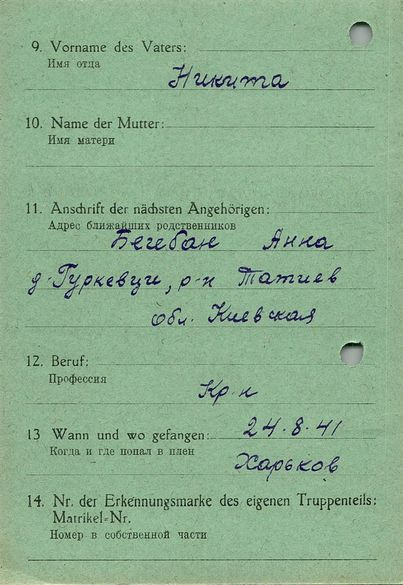 9. Vorname des Vaters:
Имя отца
Никита
10. Name der Mutter:
Имя матери
11. Anschrift der nächsten Angehörigen:
Адрес ближайших родственников
Бегебан Анна
д-Гуркевци, р-н Татиев
обл. Киевская
12. Beruf:
Профессия
Кр-н
13 Wann und wo gefangen: 24-8-41
Когда и где попал в плен
Харьков
14. Nr. der Erkennungsmarke des eigenen Truppenteils:
Matrikel-Nr.
Номер в собственной части